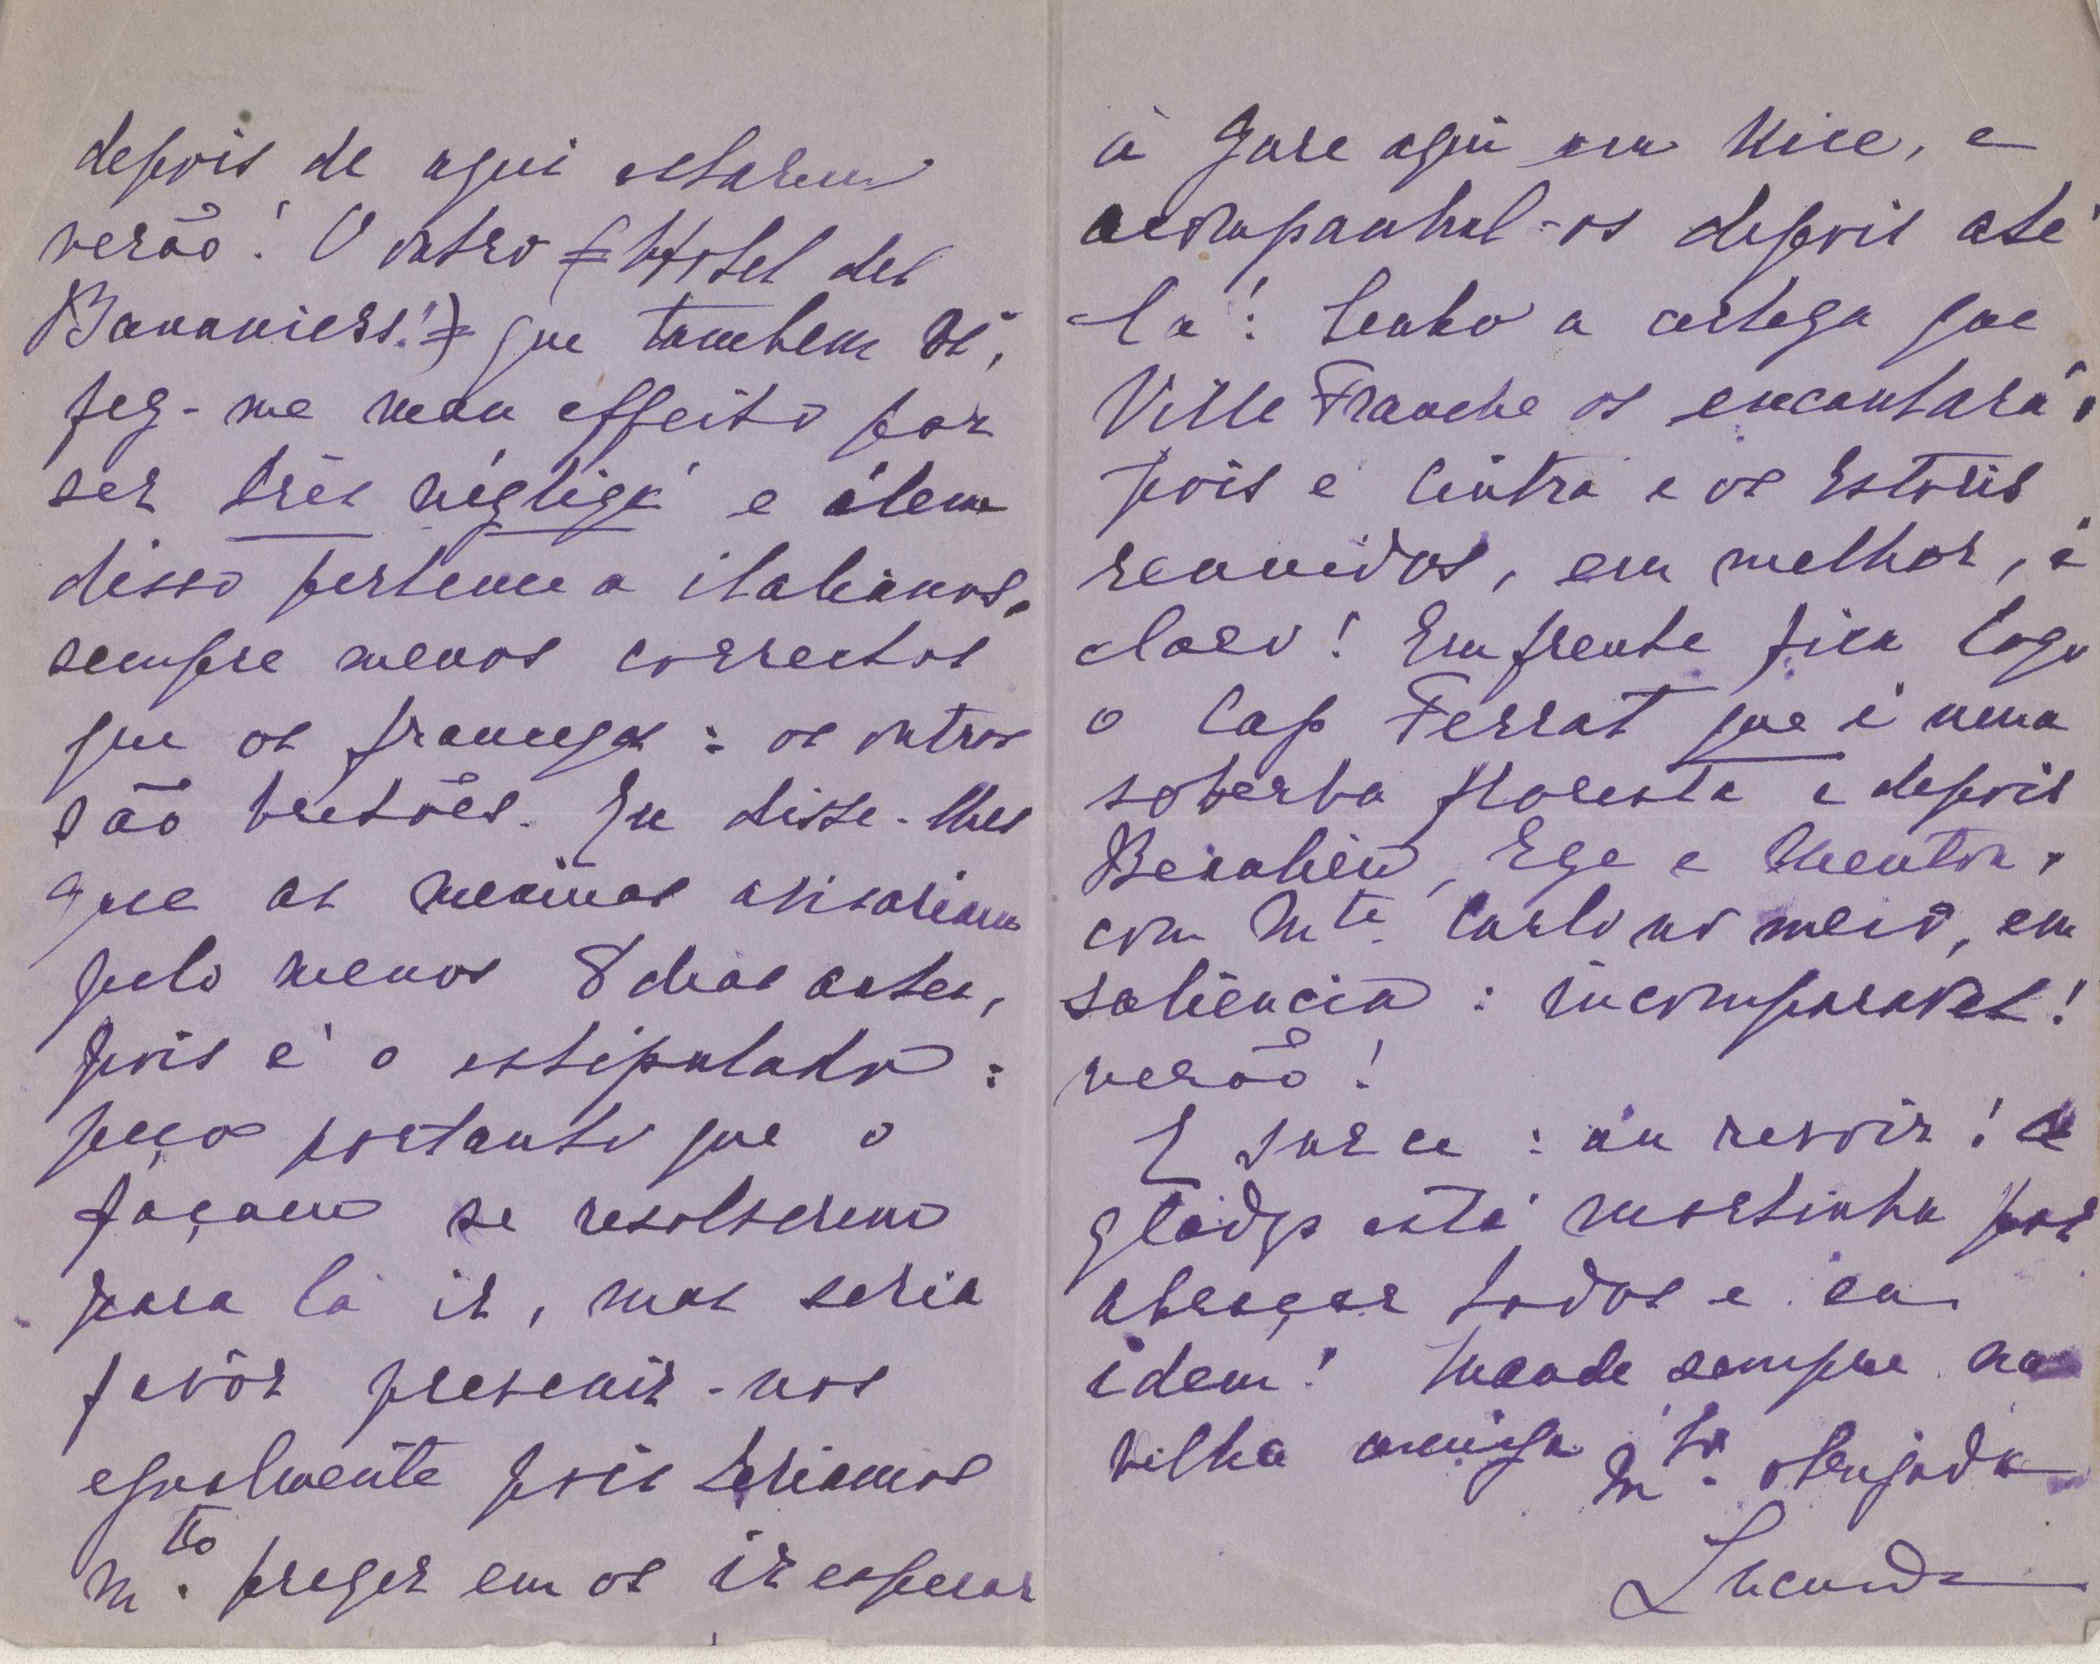 depois de aqui estarem
verão! O outro (Hotel des
Bananiers!) que tambem vi,
fez-me mau effeito por
ser très négligé e álem
disso pertence a italianos,
sempre menos correctos
que os francezes: os outros
são bretões. Eu disse-lhes
que as meninas avisariam
pelo menos 8 dias antes,
pois é o estipulado:
peço portanto que o
façam se resolverem
para lá ir, mas seria
favôr prevenir-nos
egualmente pois teriamos
m.to prazer em os ir esperar
á gare aqui em Nice, e
acompanhal-os depois até
lá! Tenho a certeza que
Ville Franche os encantará,
pois é Cintra e os Estoris
reunidos, em melhor, é
claro! Em frente fica logo
o Cap Ferrat que é uma
soberba floresta e depois
Beaulieu, Eze e Menton,
com Mte. Carlo no meio, em
saliencia: incomparavel!
verão!
E sur ce: au revoir! A
Gladys está mortinha por
abraçar todos e eu
idem! Mande sempre na
velha amiga m.to obrigada
Lucinda